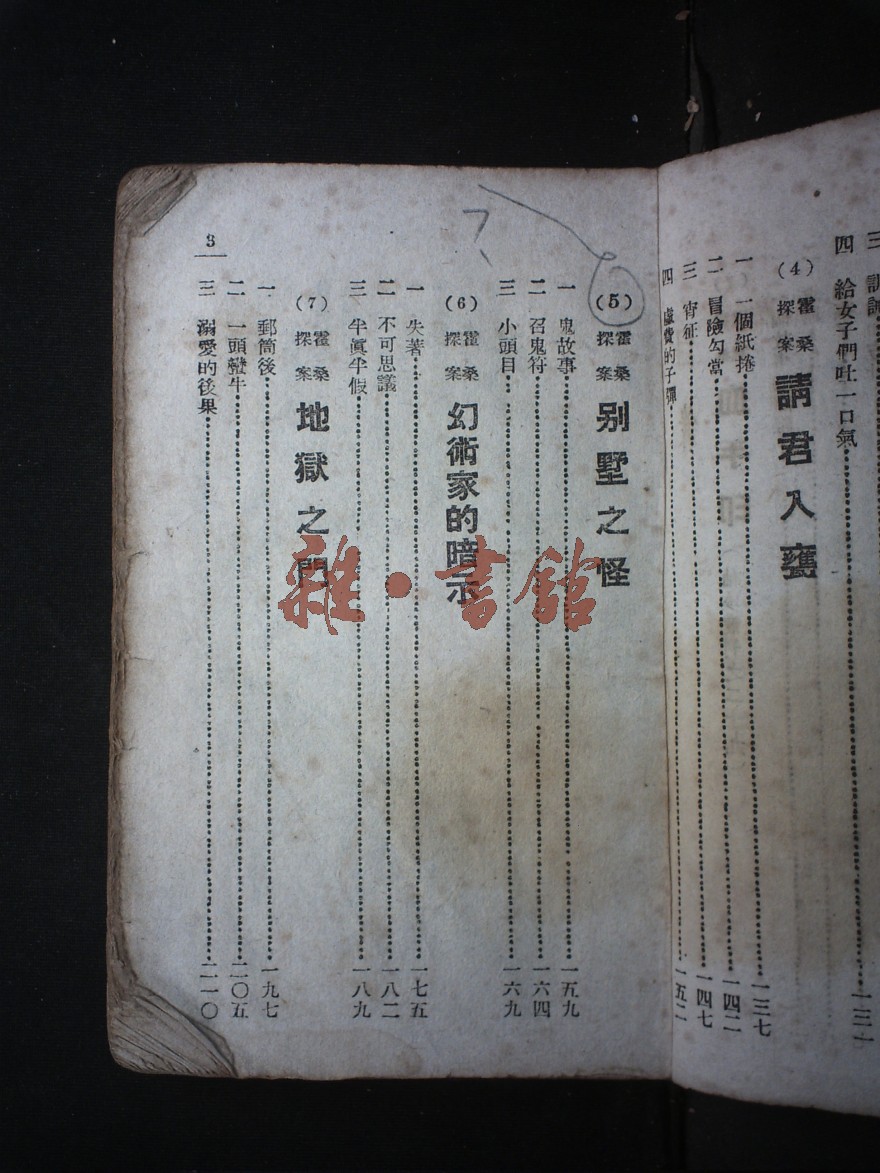 四 給女子們吐一口氣
(4) 霍桑探案 請君入甕
一 一個紙捲 一三七
二 冒險勾當 一四二
三 宵征 一四七
四 虛費的子彈 一五二
3
(5) 霍桑探案 別墅之怪
一 鬼故事 一五九
二 召鬼符 一六四
三 小頭目 一六九
(6) 霍桑探案 幻術家的暗示
一 失著 一七五
二 不可思議 一八二
三 半眞半假 一八九
(7) 霍桑探案 地獄之門
一 郵筒後 一九七
二 一頭蠻牛 二〇五
三 溺愛的後果 二一〇
雜·書館